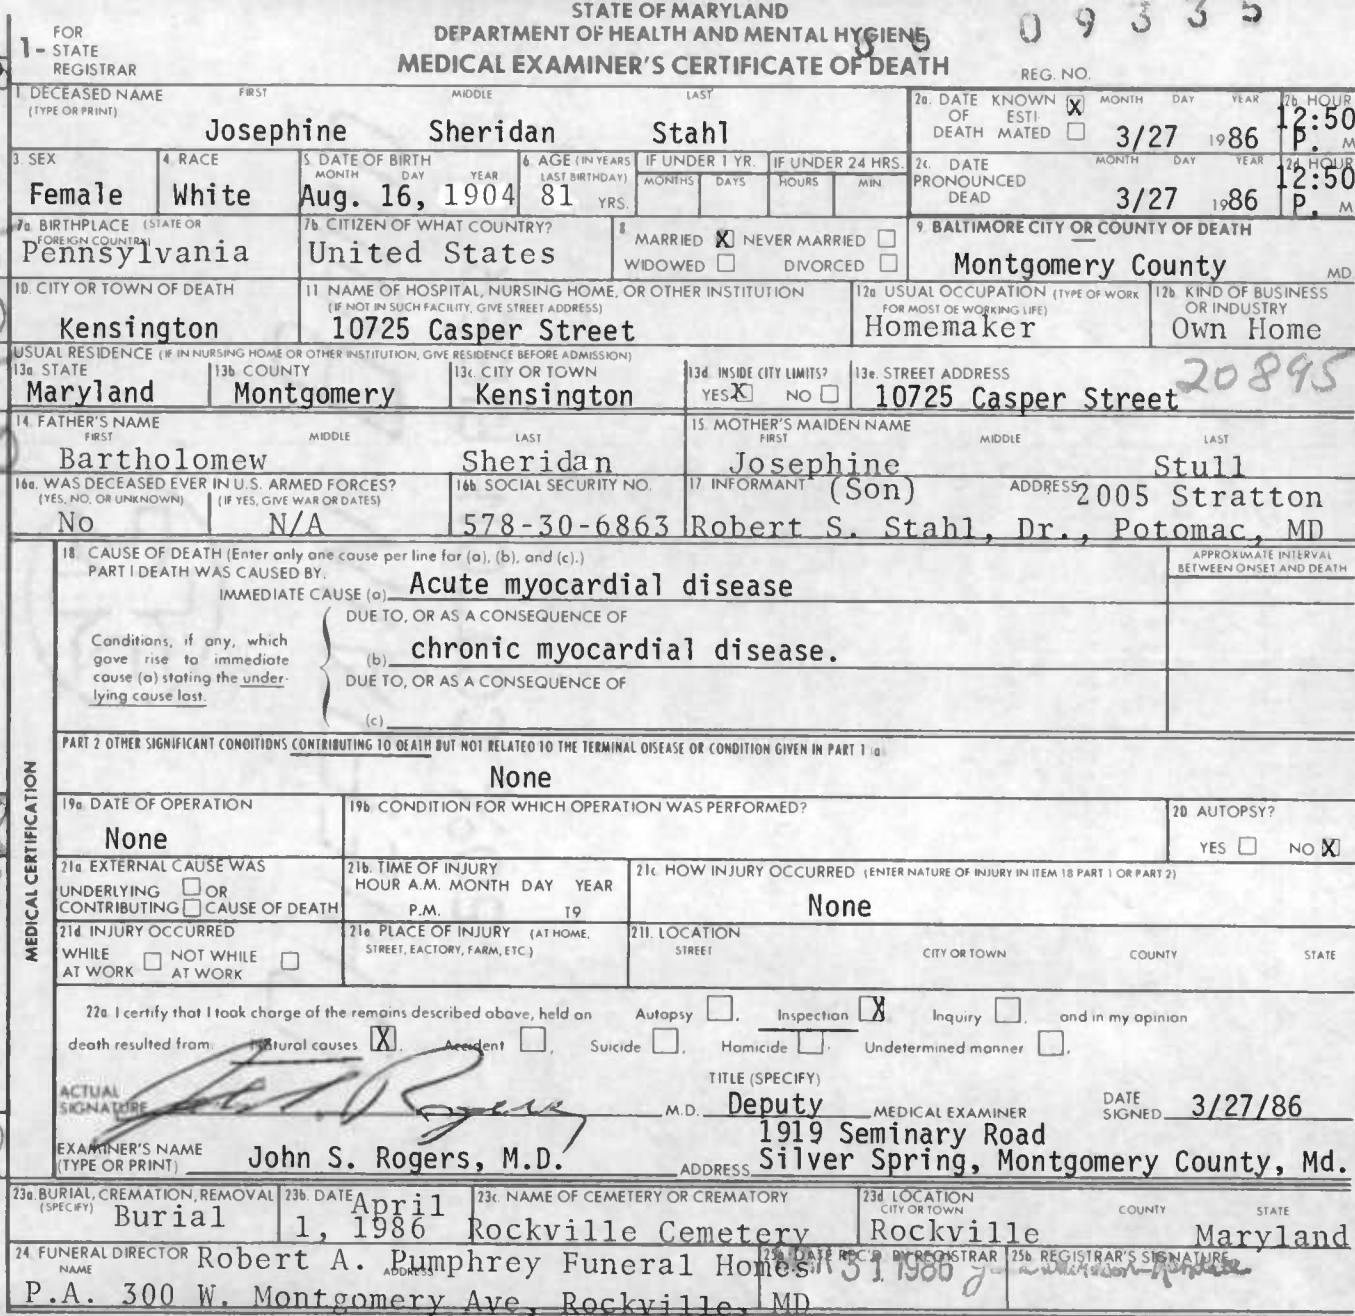 STATE OF MARYLAND
DEPARTMENT OF HEALTH AND MENTAL HYGIENE
MEDICAL EXAMINER'S CERTIFICATE OF DEATH
FOR
1- STATE
REGISTRAR
86 09335
REG. NO.
1. DECEASED NAME FIRST MIDDLE LAST
(TYPE OR PRINT)
Josephine Sheridan Stahl
2a. DATE KNOWN X MONTH DAY YEAR 2b. HOUR
OF ESTI-
DEATH MATED 3/27 1986 12:50 P. M
3. SEX 4. RACE 5. DATE OF BIRTH 6. AGE (IN YEARS IF UNDER 1 YR. IF UNDER 24 HRS.
MONTH DAY YEAR LAST BIRTHDAY) MONTHS DAYS HOURS MIN.
Female White Aug. 16, 1904 81 YRS.
2c. DATE MONTH DAY YEAR 2d. HOUR
PRONOUNCED
DEAD 3/27 1986 12:50 P. M
7a. BIRTHPLACE (STATE OR
FOREIGN COUNTRY)
Pennsylvania
7b. CITIZEN OF WHAT COUNTRY?
United States
8. MARRIED X NEVER MARRIED
WIDOWED DIVORCED
9. BALTIMORE CITY OR COUNTY OF DEATH
Montgomery County MD
10. CITY OR TOWN OF DEATH
Kensington
11. NAME OF HOSPITAL, NURSING HOME, OR OTHER INSTITUTION
(IF NOT IN SUCH FACILITY, GIVE STREET ADDRESS)
10725 Casper Street
12a. USUAL OCCUPATION (TYPE OF WORK
FOR MOST OF WORKING LIFE)
Homemaker
12b. KIND OF BUSINESS
OR INDUSTRY
Own Home
USUAL RESIDENCE (IF IN NURSING HOME OR OTHER INSTITUTION, GIVE RESIDENCE BEFORE ADMISSION)
13a. STATE 13b. COUNTY 13c. CITY OR TOWN 13d. INSIDE CITY LIMITS? 13e. STREET ADDRESS 20895
Maryland Montgomery Kensington YES X NO 10725 Casper Street
14. FATHER'S NAME
FIRST MIDDLE LAST
Bartholomew Sheridan
15. MOTHER'S MAIDEN NAME
FIRST MIDDLE LAST
Josephine Stull
16a. WAS DECEASED EVER IN U.S. ARMED FORCES?
(YES, NO, OR UNKNOWN) (IF YES, GIVE WAR OR DATES)
No N/A
16b. SOCIAL SECURITY NO.
578-30-6863
17. INFORMANT (Son) ADDRESS 2005 Stratton
Robert S. Stahl, Dr., Potomac, MD
MEDICAL CERTIFICATION
18. CAUSE OF DEATH (Enter only one cause per line for (a), (b), and (c).)
PART I DEATH WAS CAUSED BY.
APPROXIMATE INTERVAL
BETWEEN ONSET AND DEATH
IMMEDIATE CAUSE (a) Acute myocardial disease
DUE TO, OR AS A CONSEQUENCE OF
Conditions, if any, which
gave rise to immediate
cause (a) stating the under-
lying cause last.
(b) chronic myocardial disease.
DUE TO, OR AS A CONSEQUENCE OF
(c)
PART 2 OTHER SIGNIFICANT CONDITIONS CONTRIBUTING TO DEATH BUT NOT RELATED TO THE TERMINAL DISEASE OR CONDITION GIVEN IN PART 1 a
None
19a. DATE OF OPERATION
None
19b. CONDITION FOR WHICH OPERATION WAS PERFORMED?
20. AUTOPSY?
YES NO X
21a. EXTERNAL CAUSE WAS
UNDERLYING OR
CONTRIBUTING CAUSE OF DEATH
21b. TIME OF INJURY
HOUR A.M. MONTH DAY YEAR
P.M. 19
21c. HOW INJURY OCCURRED (ENTER NATURE OF INJURY IN ITEM 18 PART 1 OR PART 2)
None
21d. INJURY OCCURRED
WHILE AT WORK NOT WHILE AT WORK
21e. PLACE OF INJURY (AT HOME,
STREET, FACTORY, FARM, ETC.)
21f. LOCATION
STREET CITY OR TOWN COUNTY STATE
22a. I certify that I took charge of the remains described above, held an Autopsy , Inspection X Inquiry , and in my opinion
death resulted from. Natural causes X, Accident , Suicide , Homicide . Undetermined manner .
TITLE (SPECIFY)
ACTUAL
SIGNATURE John S. Rogers M.D. Deputy MEDICAL EXAMINER DATE SIGNED 3/27/86
EXAMINER'S NAME
(TYPE OR PRINT) John S. Rogers, M.D.
1919 Seminary Road
ADDRESS Silver Spring, Montgomery County, Md.
23a. BURIAL, CREMATION, REMOVAL
(SPECIFY) Burial
23b. DATE April
1, 1986
23c. NAME OF CEMETERY OR CREMATORY
Rockville Cemetery
23d. LOCATION
CITY OR TOWN COUNTY STATE
Rockville Maryland
24. FUNERAL DIRECTOR Robert A. Pumphrey Funeral Homes
NAME ADDRESS
P.A. 300 W. Montgomery Ave, Rockville, MD
25a. DATE REC'D. BY REGISTRAR
31 1986
25b. REGISTRAR'S SIGNATURE